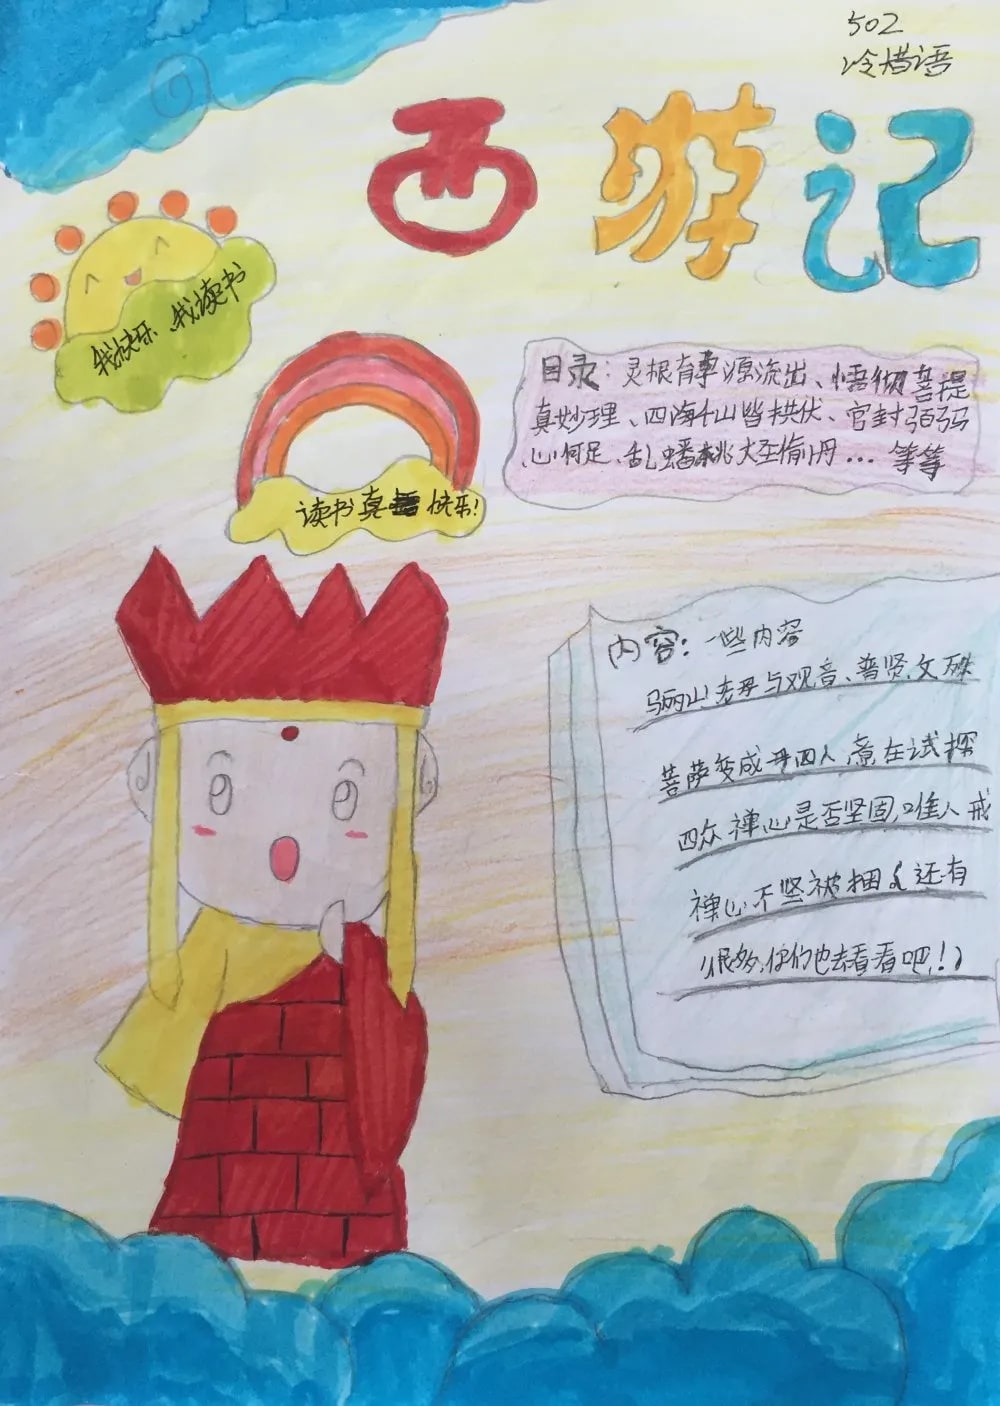 502
冷惜语
西游记
我快乐、我读书
读书真快乐!
目录:灵根育孕源流出、悟彻菩提
真妙理、四海千山皆拱伏、官封弼马
心何足、乱蟠桃大圣偷丹...等等
内容:一些内容
骊山老母与观音、普贤、文殊
菩萨变成母四人意在试探
四众禅心是否坚固,唯人戒
禅心不坚被捆〈还有
很多,你们也去看看吧!〉